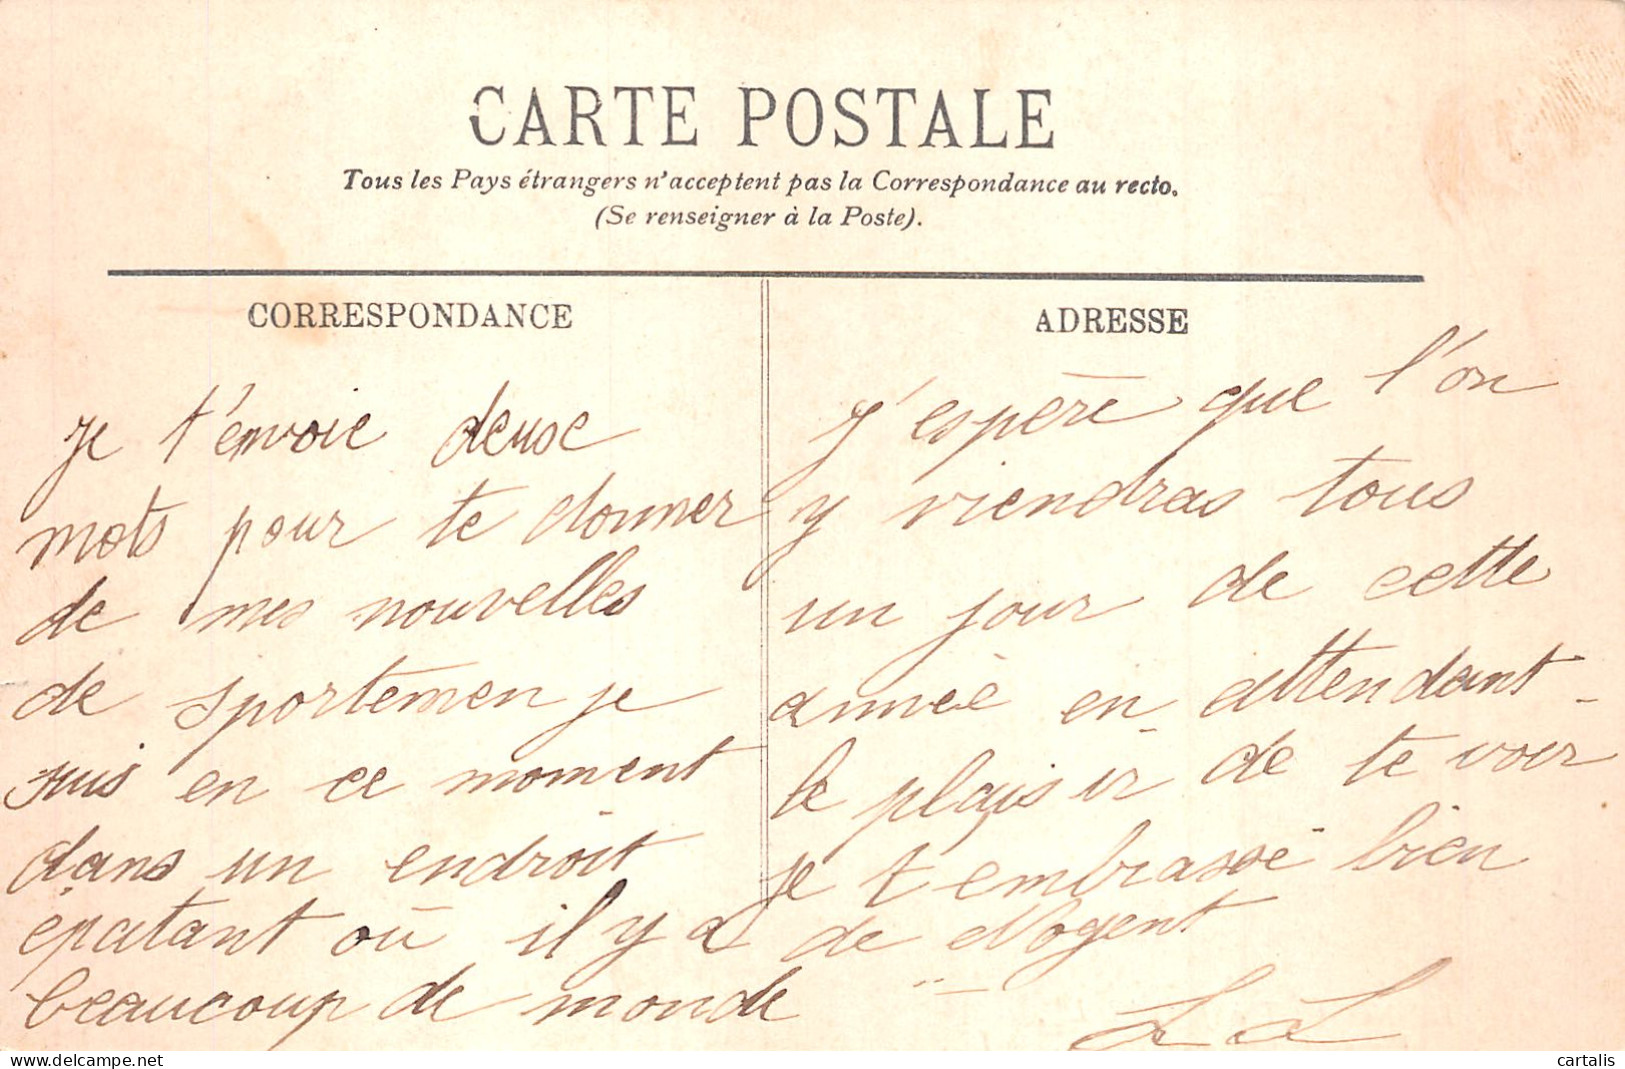 CARTE POSTALE
Tous les Pays étrangers n'acceptent pas la Correspondance au recto.
(Se renseigner à la Poste).
CORRESPONDANCE
je t'envoie deuse
mots pour te donner
de mes nouvelles
de sportemen je
suis en ce moment
dans un endroit
épatant où il y a
beaucoup de monde
ADRESSE
j'espère que l'on
y viendras tous
un jour de cette
année en attendant
le plaisir de te voir
je t'embrasse bien
de Nogent
L L
cartalis